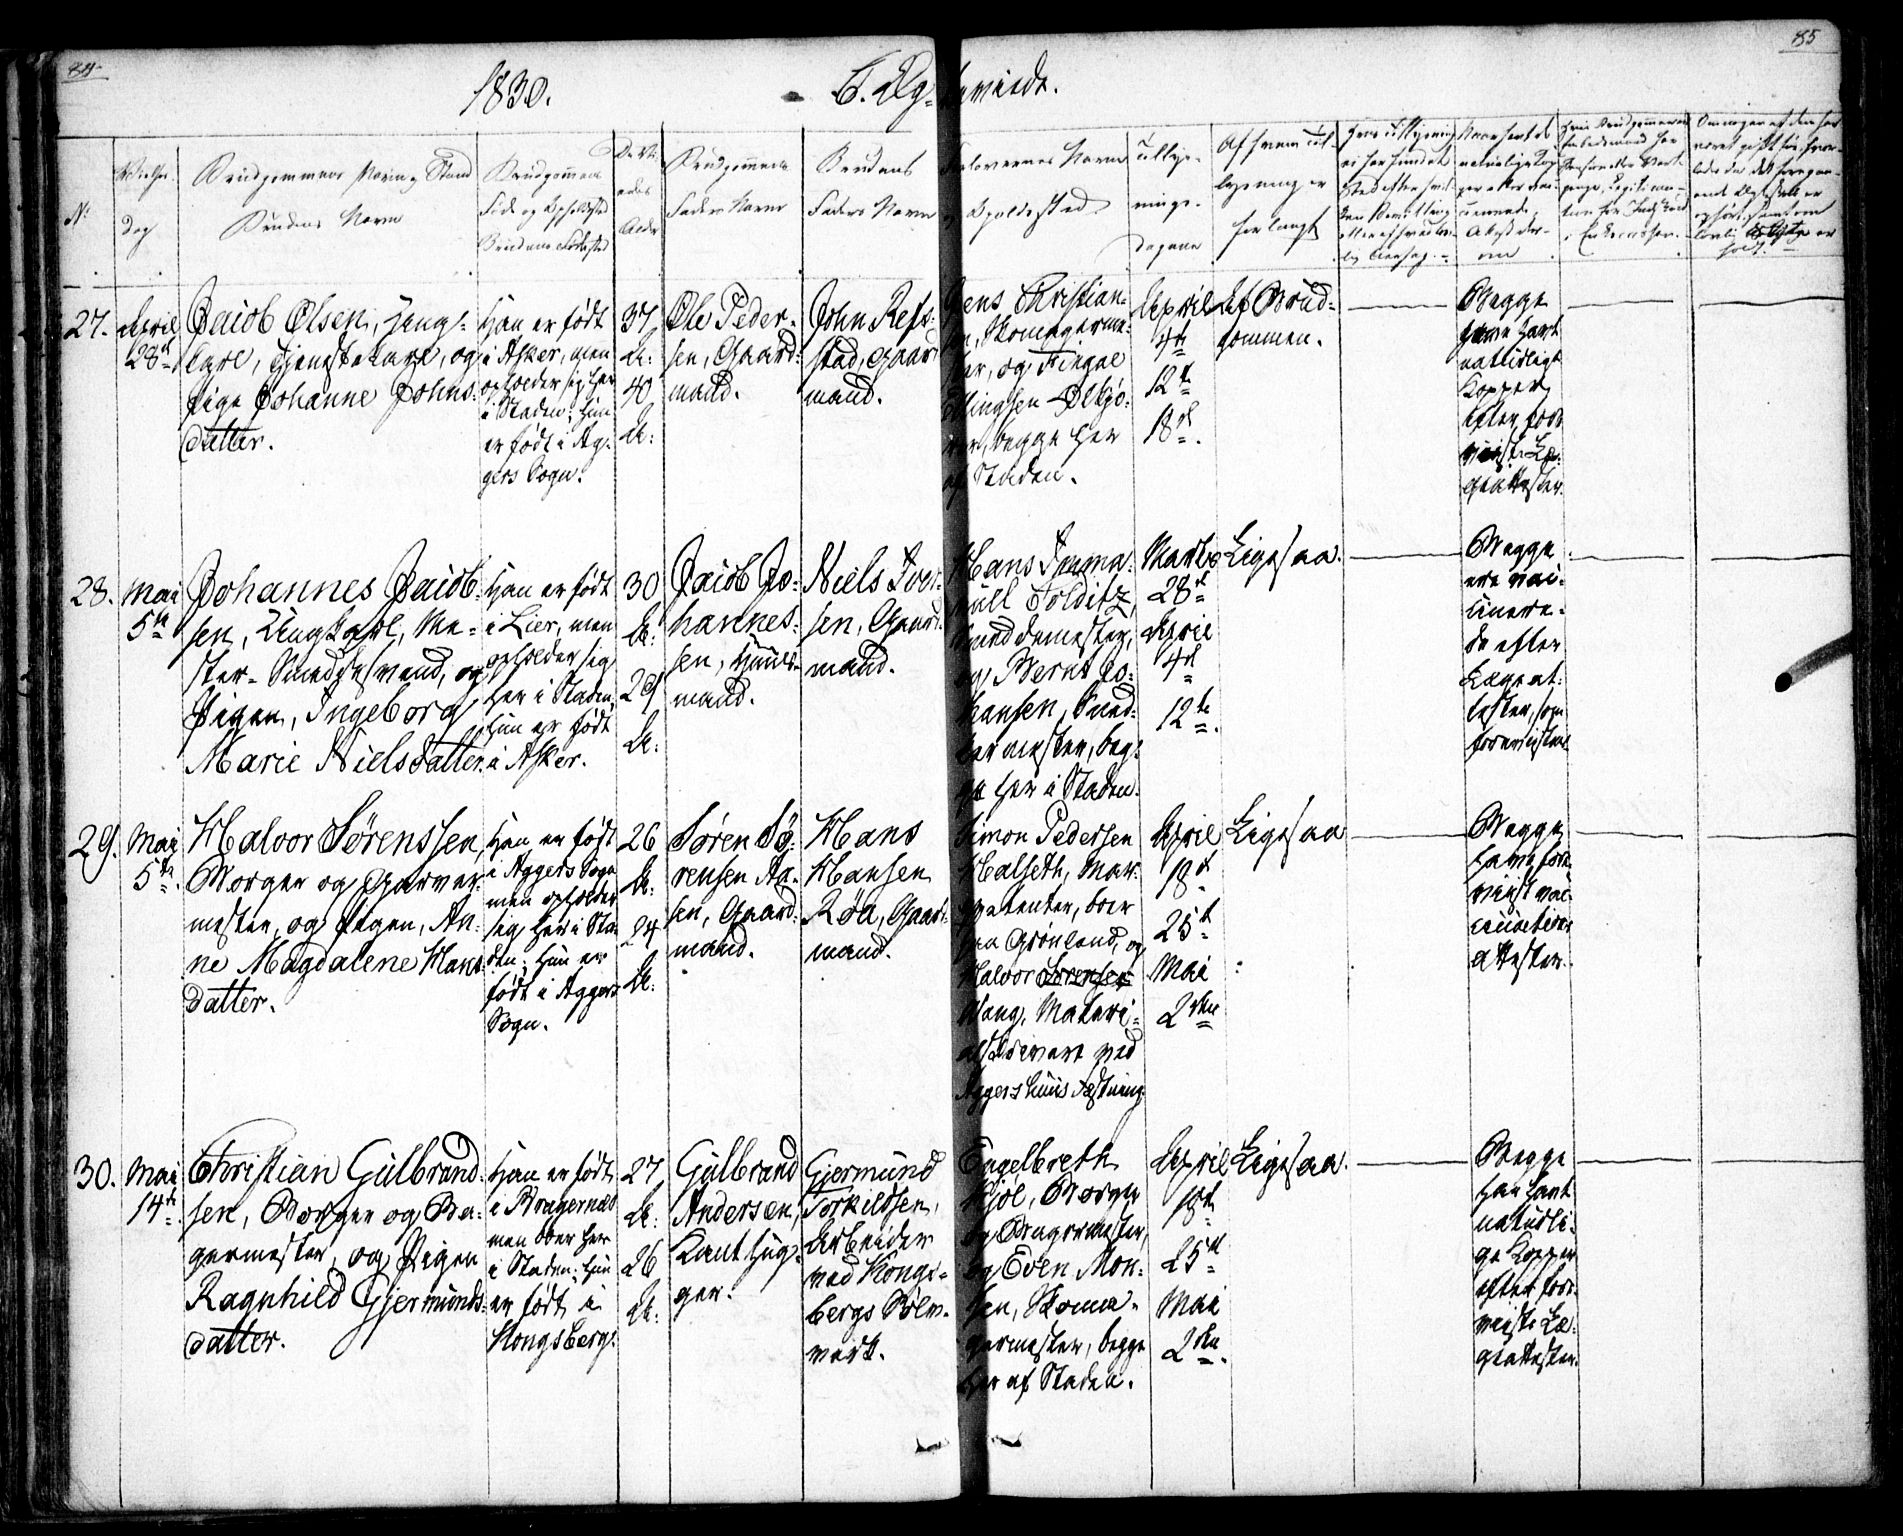 84
85
1830.
C. Ægtevviede.
No
Vielses-
dag
Brudgommens Navn og Stand
Brudens Navn
Brudgommens
Føde og Opholdssted
Brudens Fødested
De Vi-
edes
Alder
Brudgommens
Faders Navn
Brudens
Faders Navn
Forlovernes Navn
og Opholdssted
Tillys-
nings-
dagene
Af hvem til-
lysning er
forlangt
27.
April
28de
Jacob Olsen, Ung-
karl, Tjenestekarl, og
Pige Johanne Johns-
datter.
Han er født
i Asker, men
opholder sig her
i Staden; Hun
er født i Ag-
gers Sogn.
37
A:
40
A:
Ole Peder-
sen, Gaard-
mand.
John Refs-
stad, Gaard
mand.
Jens Christian-
sen, Skomagerme-
ster, og Fingal
Ellingsen
begge her
af Staden.
April
4de
12te
18de.
Af Brud-
gommen.
Begge
have havt
naturlige
Kopper
efter fore
viiste Læ-
geattester.
28.
Mai
5te
Johannes Jacob-
sen, Ungkarl, Me-
ster-Smedsvend, og
Pigen, Ingeborg
Marie Nielsdatter.
Han er født
i Lier, men
opholder sig
her i Staden,
Hun er født
i Asker.
30
A:
29
A:
Jacob Jo-
hannes-
sen, Huus-
mand.
Niels Iver-
sen, Gaard-
mand.
Hans Imma-
nuel Tolditz,
Smeddemester,
og Bernt Jo-
hansen, Sned-
kermester, beg-
ge her i Staden.
Marts
28de
April
4de
12te.
Ligesaa.
Begge
ere vac-
cinere-
de efter
Lægeat-
tester, som
forevistes.
29.
Mai
5te
Halvor Sørenssen,
Borger og Garver-
mester, og Pigen, An-
ne Magdalene Hans-
datter.
Han er født
i Aggers Sogn
men opholder
sig her i Sta-
den; Hun er
født i Aggers
Sogn.
26
A:
24
A:
Søren Sø-
rensen Aa-
sen, Gaard-
mand.
Hans
Hansen
Røa, Gaard-
mand.
Simon Pedersen
Halseth, Mar-
ketenter, boer
paa Grønland, og
Halvor Sørensen
Wang, Materi-
alskriver ved
Aggershuus Fæstning.
April
18de
25de
Mai
2den
Ligesaa
Begge
have fore
viist vac-
cinations
attester.
30.
Mai
14de
Christian Gulbrand-
sen, Borger og Ba-
germester, og Pigen
Ragnhild Gjermunds-
datter.
Han er født
i Bragernæs
men boer her
i Staden; Hun
er født i
Kongsberg.
27
A:
26
A:
Gulbrand
Andersen,
Kanthug-
ger.
Gjermund
Torkildsen,
Arbeider
ved Kongs-
bergs Sølv-
værk.
Engelbreth
Kjøl, Borger
og Bagermester,
og Even Mon-
sen, Skoma-
germester, begge
her af Staden.
April
18de
25de
Mai
2den.
Ligesaa.
Begge
har havt
naturli-
ge Kopper
efter fore-
viiste Læ-
geattester.